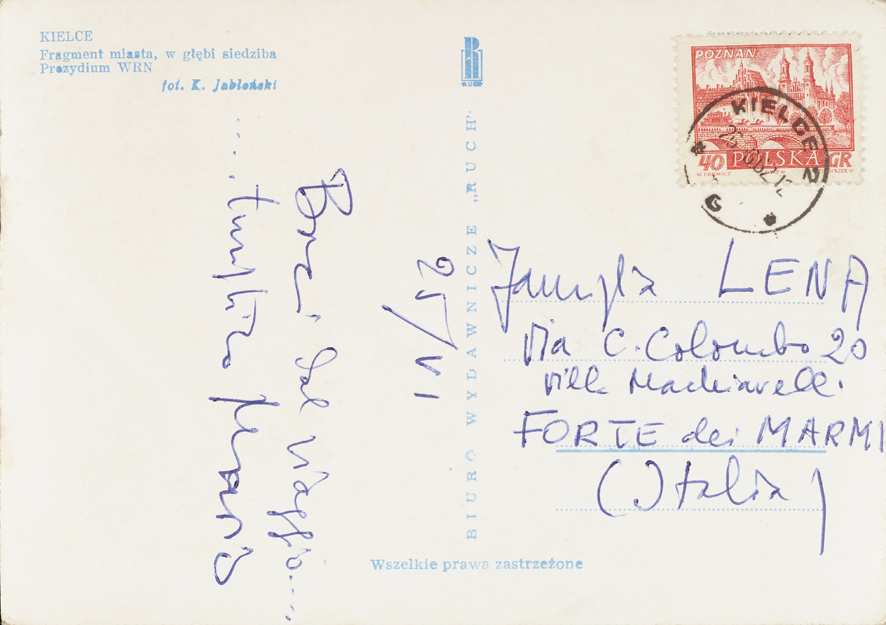 KIELCE
Fragment miasta, w głębi siedziba
Prezydium WRN
fot. K. Jabłoński
RUCH
BIURO WYDAWNICZE „RUCH"
Wszelkie prawa zastrzeżone
POZNAŃ
40 POLSKA GR
KIELCE 2
Baci dal viaggio....
....
25/VI
Famiglia LENA
via C. Colombo 20
villa Machiavelli
FORTE dei MARMI
(Italia)